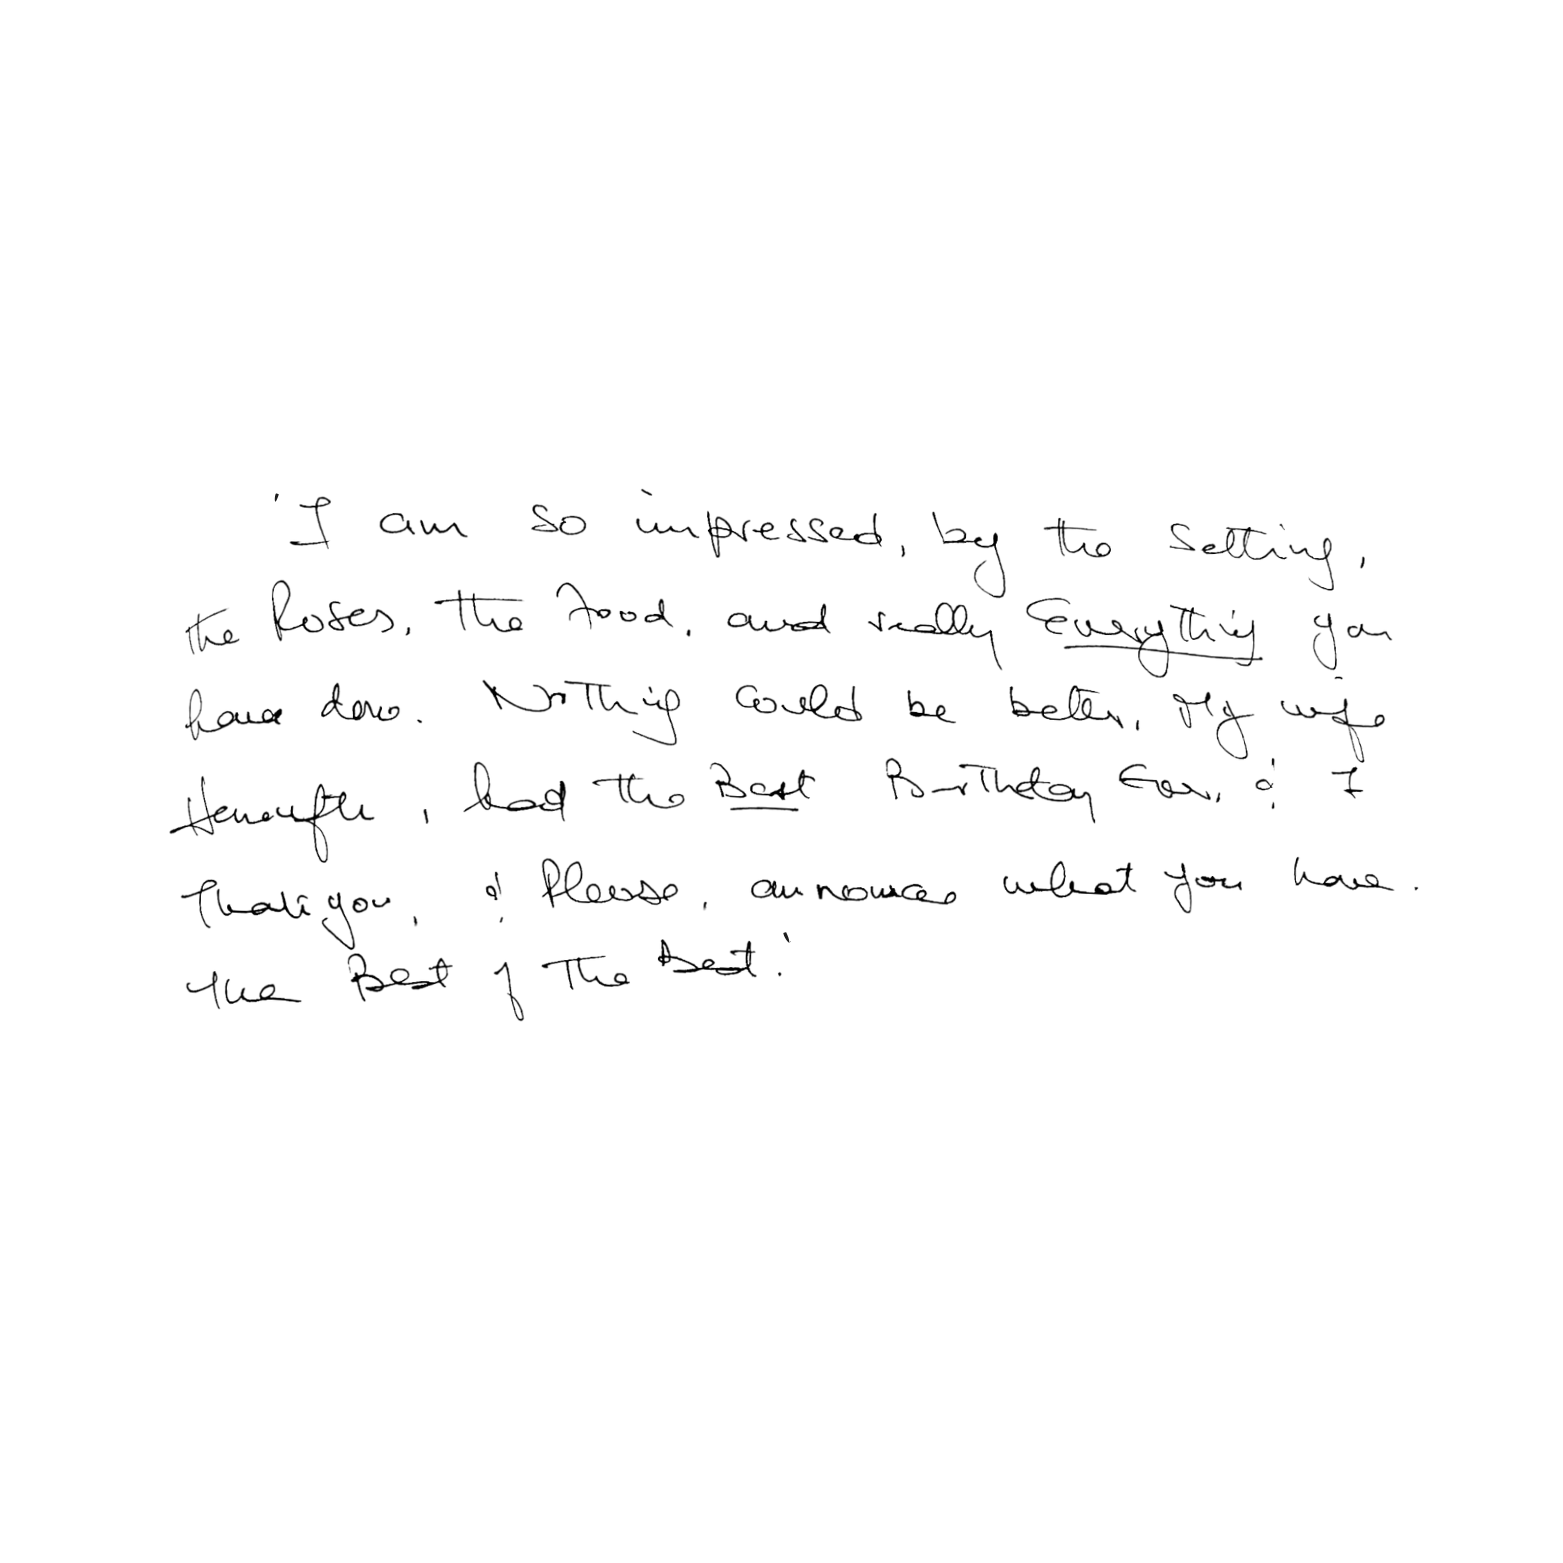 'I am so impressed, by the setting,
the Roses, the Food, and really Everything you
have done. Nothing could be better, My wife
, had the Best Birthday Ever, & I
Thank you, & Please, announce what you have.
The Best of The Best.'